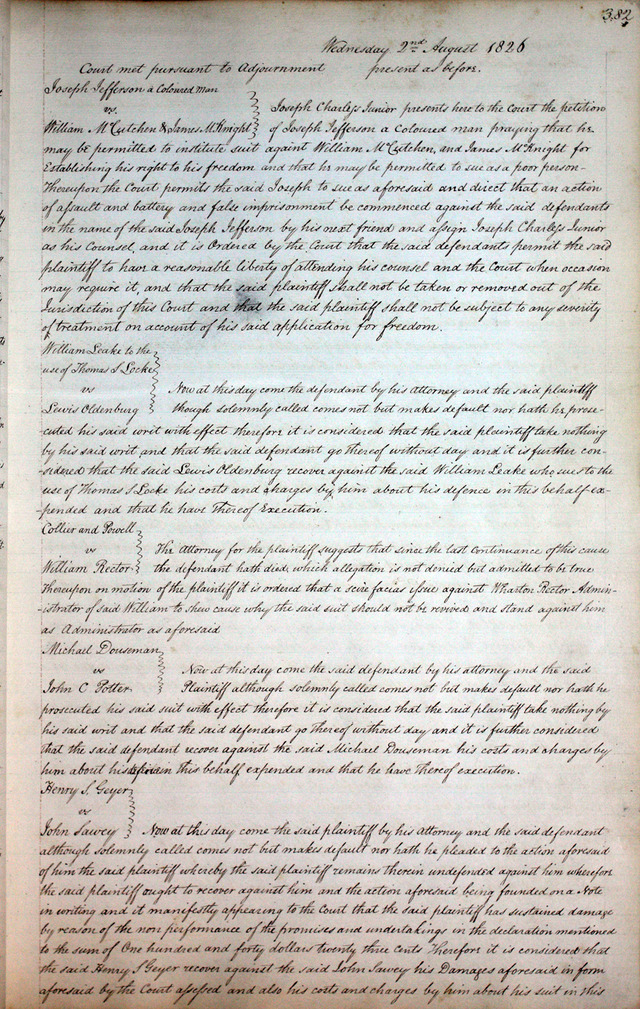 382
Wednesday 2nd August 1826
Court met pursuant to Adjournment present as before.
Joseph Jefferson a Coloured man
vs.
Joseph Charless Junior presents here to the Court the petition
William McCutchen & James McKnight of Joseph Jefferson a Coloured man praying that he
may be permitted to institute suit againt William McCutchen, and James McKnight for
Establishing his right to his freedom and that he may be permitted to sue as a poor person-
Thereupon the Court permits the said Joseph to sue as aforesaid and direct that an action
of assault and battery and false imprisonment be commenced against the said defendants
in the name of the said Joseph Jefferson by his next friend and assign Joseph Charless Junior
as his Counsel, and it is Ordered by the Court that the said defendants permit the said
plaintiff to have a reasonable liberty of attending his counsel and the Court when occasion
may require it, and that the said plaintiff shall not be taken or removed out of the
Jurisdiction of this Court and that the said plaintiff shall not be subject to any severity
of treatment on account of his said application for freedom.
William Leake to the
use of Thomas S Locke
vs Now at this day come the defendant by his Attorney and the said plaintiff
Lewis Oldenburg though solemnly called comes not but makes default nor hath he prose-
-cuted his said writ with effect therefore it is considered that the said plaintiff take nothing
by his said writ and that the said defendant go thereof without day and it is further con-
-sidered that the said Lewis Oldenburg recover against the said William Leake who sues to the
use of Thomas S Locke his costs and charges by him about his defence in this behalf ex-
-pended and that he have thereof Execution.
Collier and Powell
vs The Attorney for the plaintiff suggests that since the last continuance of this cause
William Rector the defendant hath died, which allegation is not denied but admitted to be true
Thereupon on motion of the plaintiff it is ordered that a scire facias issue against Wharton Rector Admin-
-istrator of said William to shew cause why the said suit should not be revived and stand against him
as Administrator as aforesaid
Michael Douseman
vs Now at this day come the said defendant by his attorney and the said
John C Potter Plaintiff although solemnly called comes not but makes default nor hath he
prosecuted his said suit with effect therefore it is considered that the said plaintiff take nothing by
his said writ and that the said defendant go thereof without day and it is further considered
that the said defendant recover against the said Michael Douseman his costs and charges by
him about his in this behalf expended and that he have thereof execution.
Henry S. Geyer
vs
John Sawey Now at this day come the said plaintiff by his Attorney and the said defendant
although solemnly called comes not but makes default nor hath he pleaded to the action aforesaid
of him the said plaintiff whereby the said plaintiff remains therein undefended against him wherefore
the said plaintiff ought to recover against him and the action aforesaid being founded on a Note
in writing and it manifestly appearing to the Court that the said plaintiff has sustained damage
by reason of the non performance of the promises and undertakings in the declaration mentioned
to the sum of One hundred and forty dollars twenty three cents Therefore it is considered that
the said Henry S Geyer recover against the said John Sawey his Damages aforesaid in form
aforesaid by the Court assessed and also his costs and charges by him about his suit in this